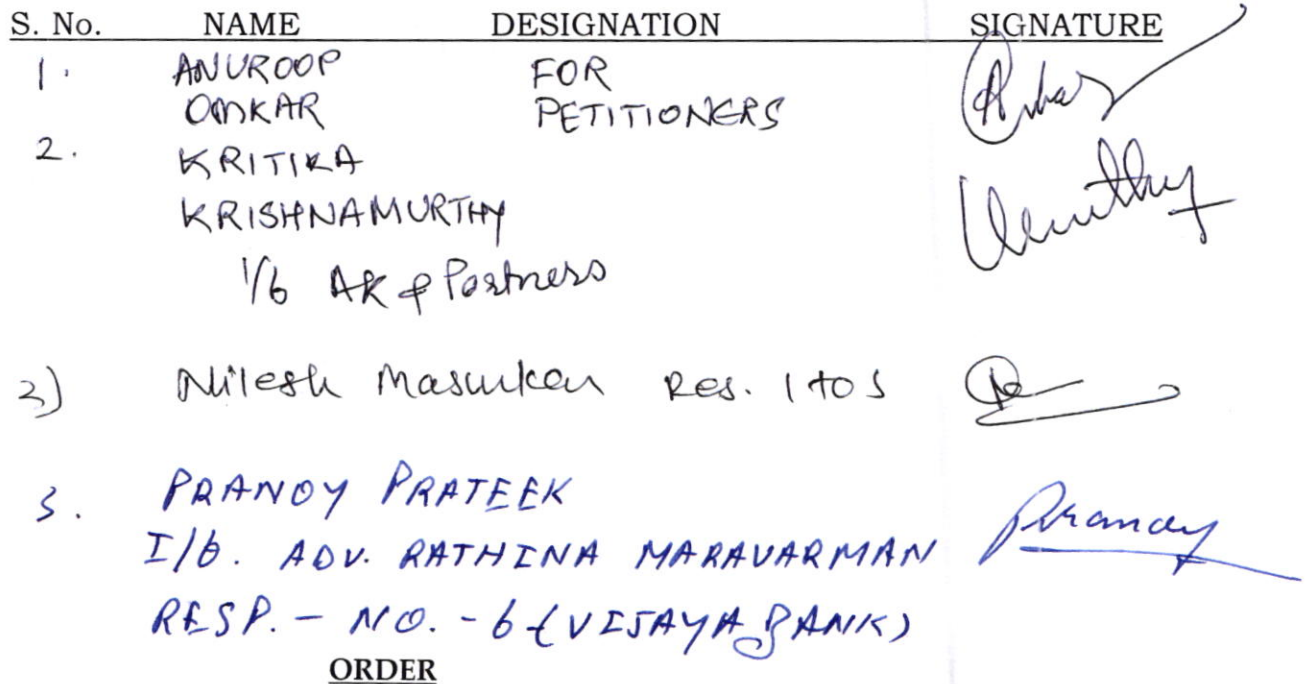 S. No. NAME DESIGNATION SIGNATURE
1. ANUROOP FOR
OMKAR PETITIONERS
2. KRITIKA
KRISHNAMURTHY
i/b AK & Partners
3) Nilesh Masurkar Res. 1 to 5
3. PRANOY PRATEEK Pranoy
I/b. ADV. RATHINA MARAVARMAN
RESP. - NO. - 6 (VIJAYA BANK)
ORDER